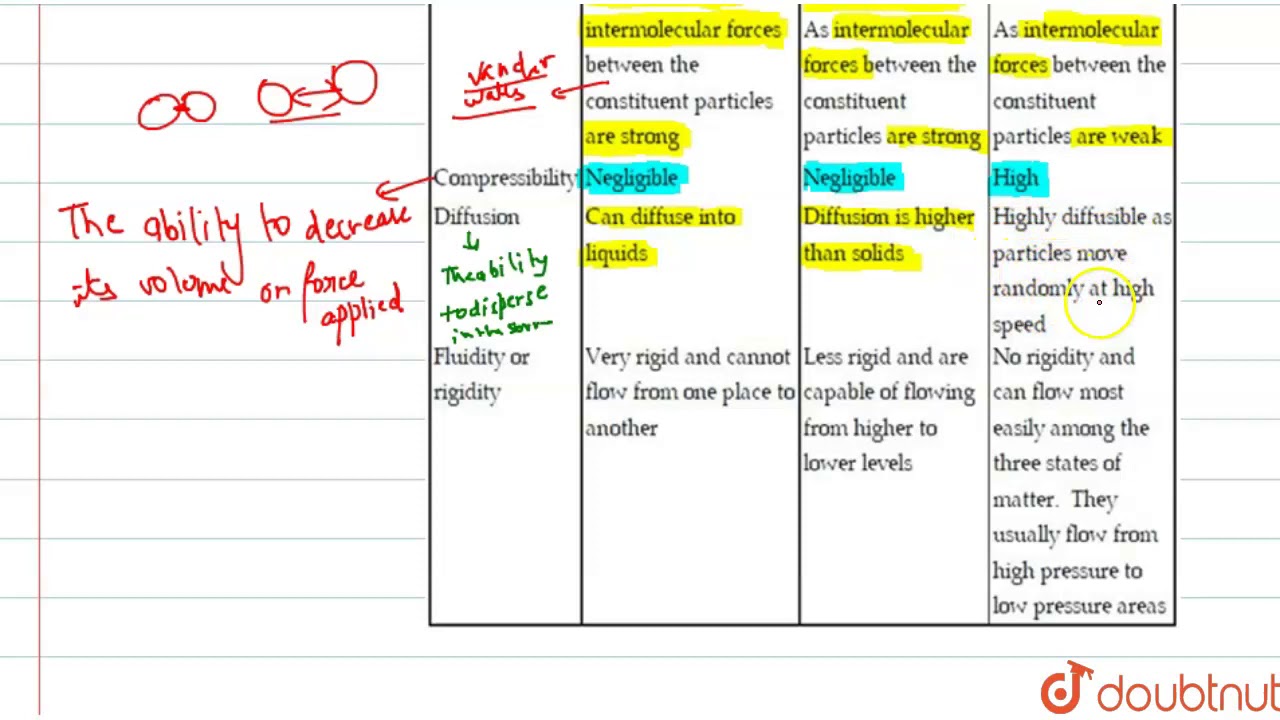 intermolecular forces
between the
constituent particles
are strong
As intermolecular
forces between the
constituent
particles are strong
As intermolecular
forces between the
constituent
particles are weak
vander
walls
Compressibility
Negligible
Negligible
High
The ability to decrease
its volume on force
applied
Diffusion
Can diffuse into
liquids
Diffusion is higher
than solids
Highly diffusible as
particles move
randomly at high
speed
The ability
to disperse
Fluidity or
rigidity
Very rigid and cannot
flow from one place to
another
Less rigid and are
capable of flowing
from higher to
lower levels
No rigidity and
can flow most
easily among the
three states of
matter. They
usually flow from
high pressure to
low pressure areas
doubtnut